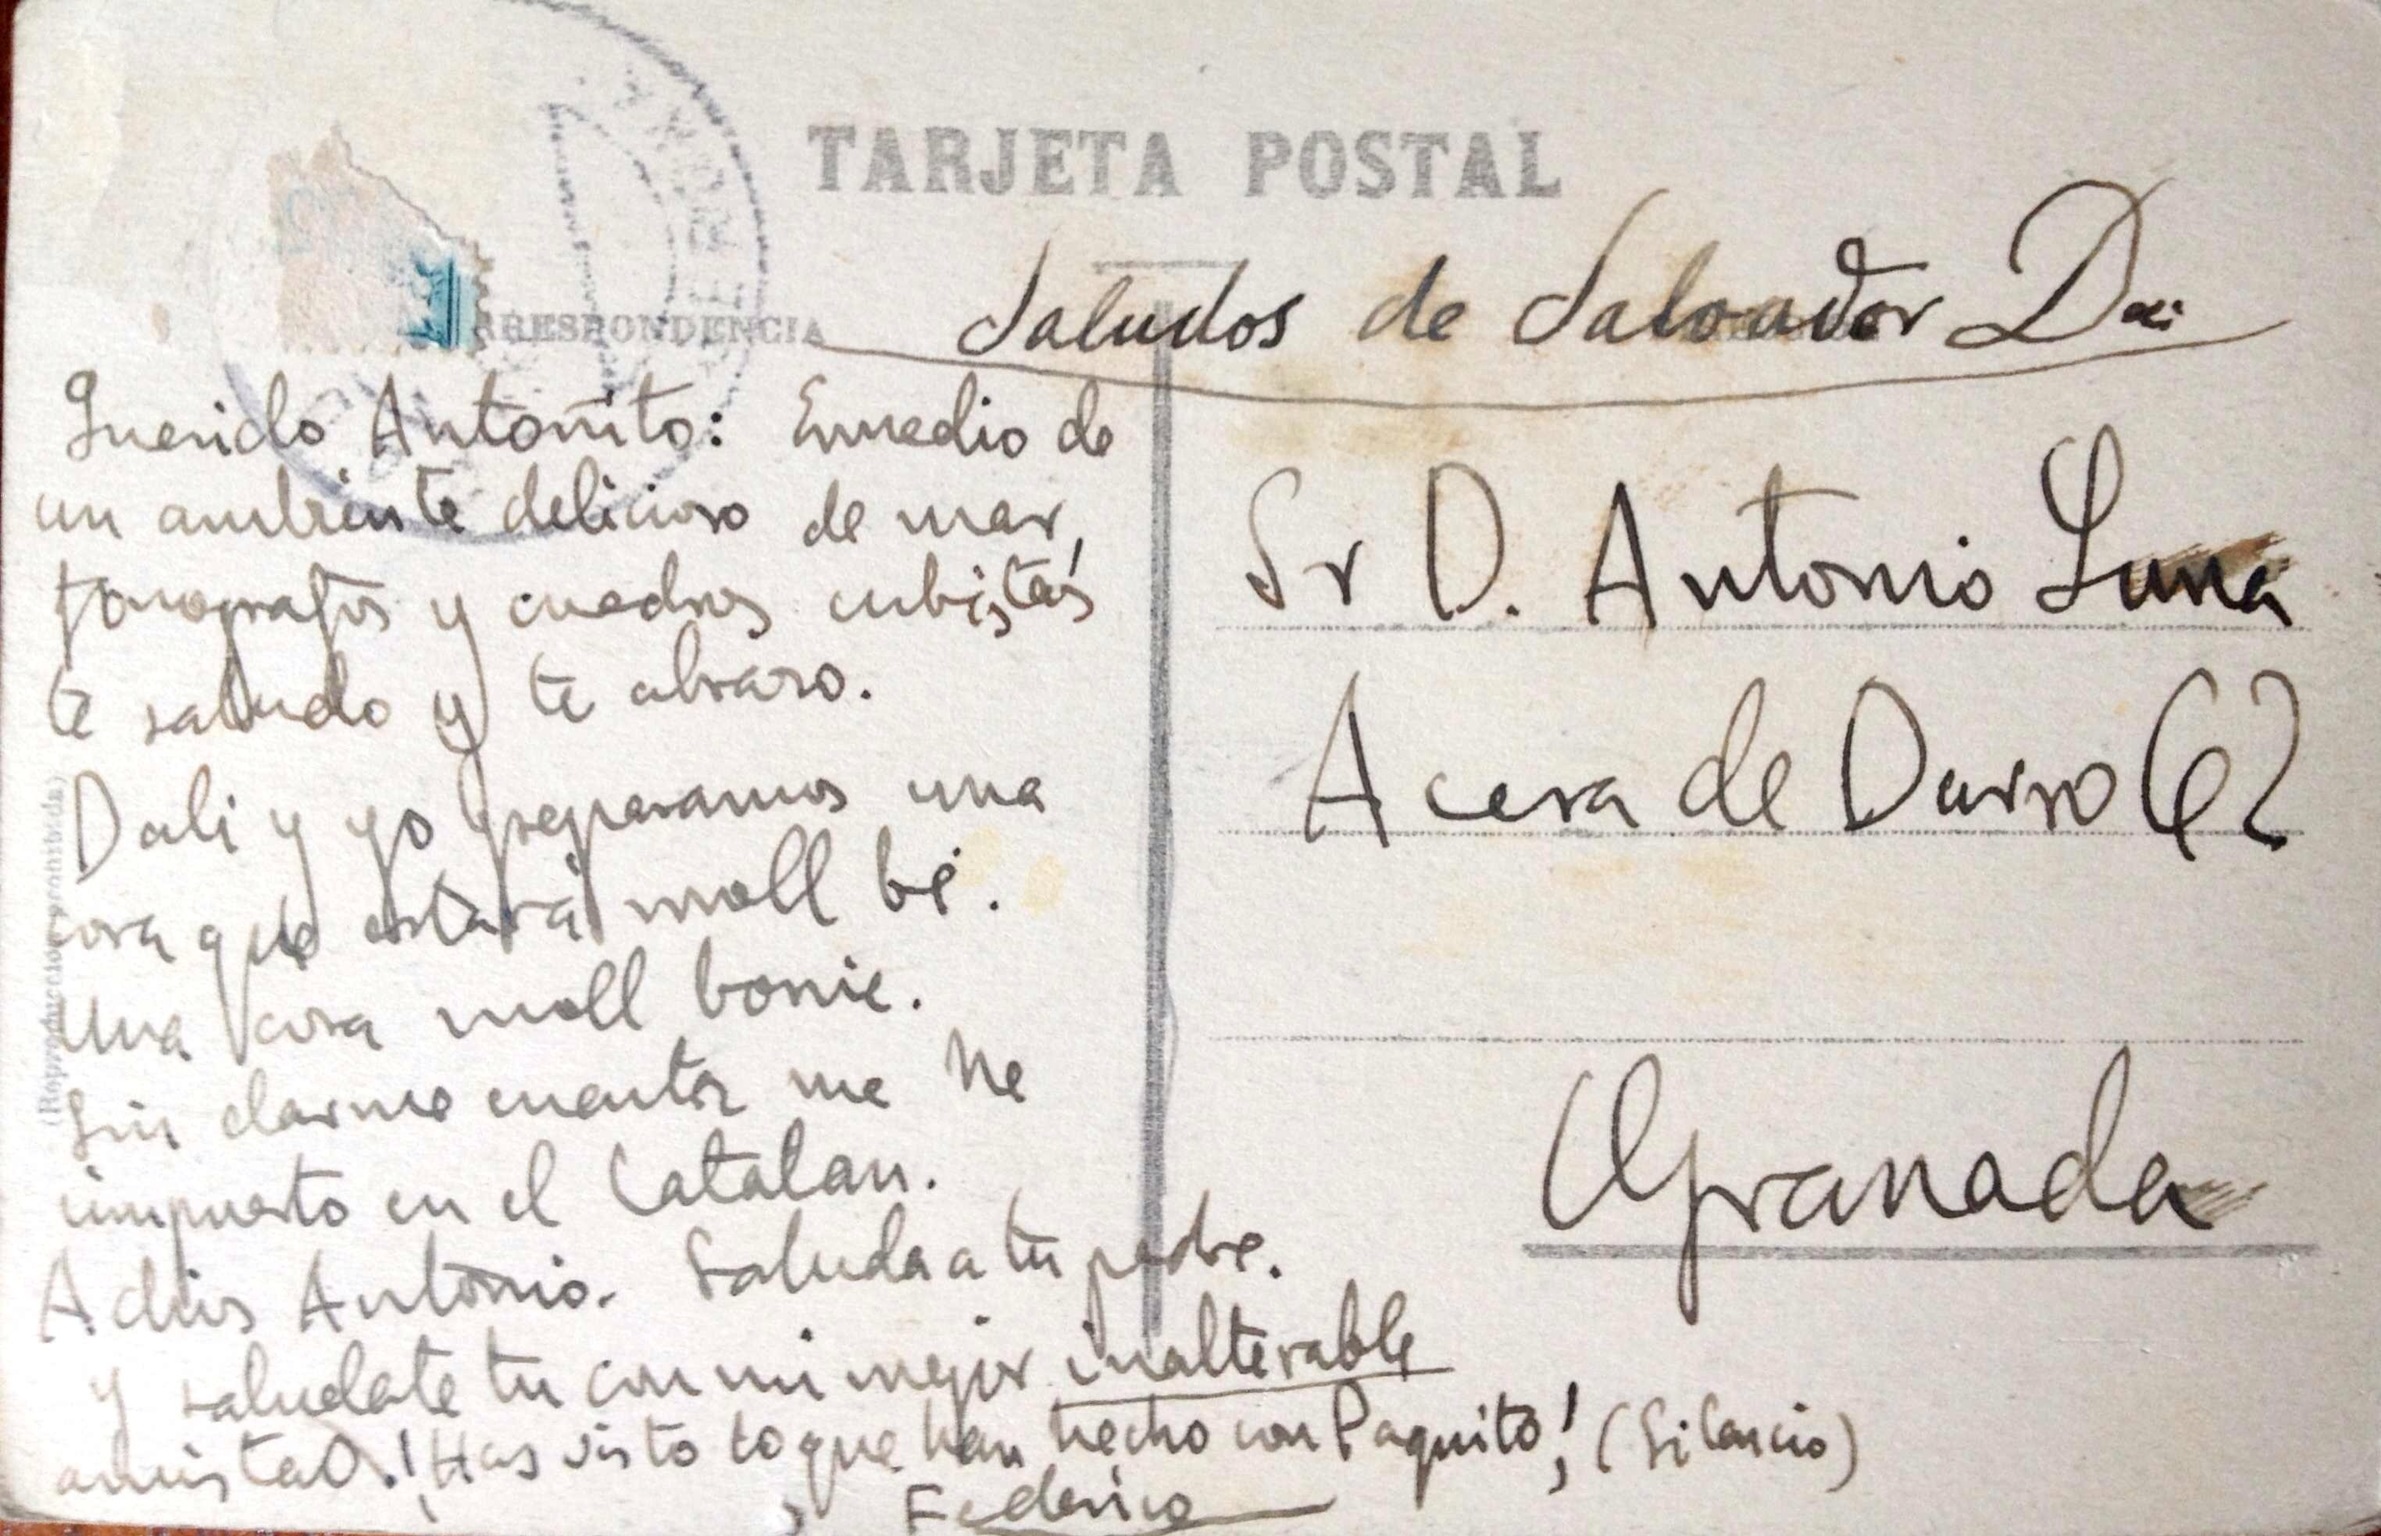 TARJETA POSTAL
RRESPONDENCIA
Saludos de Salvador Dali
Querido Antoñito: Enmedio de
un ambiente delicioso de mar,
fonografos y cuadros cubistas
te saludo y te abrazo.
Dali y yo preparamos una
cosa que estará moll bé.
Una cosa moll bonic.
Sin darme cuenta me he
impuesto en el Catalan.
Adios Antonio. Saluda a tu padre.
y saludate tu con mi mejor inalterable
amistad. ¡Has visto lo que han hecho con Paquito! (Silencio)
Federico
Sr D. Antonio Luna
Acera de Darro 62
Granada
(Reproducción prohibida)